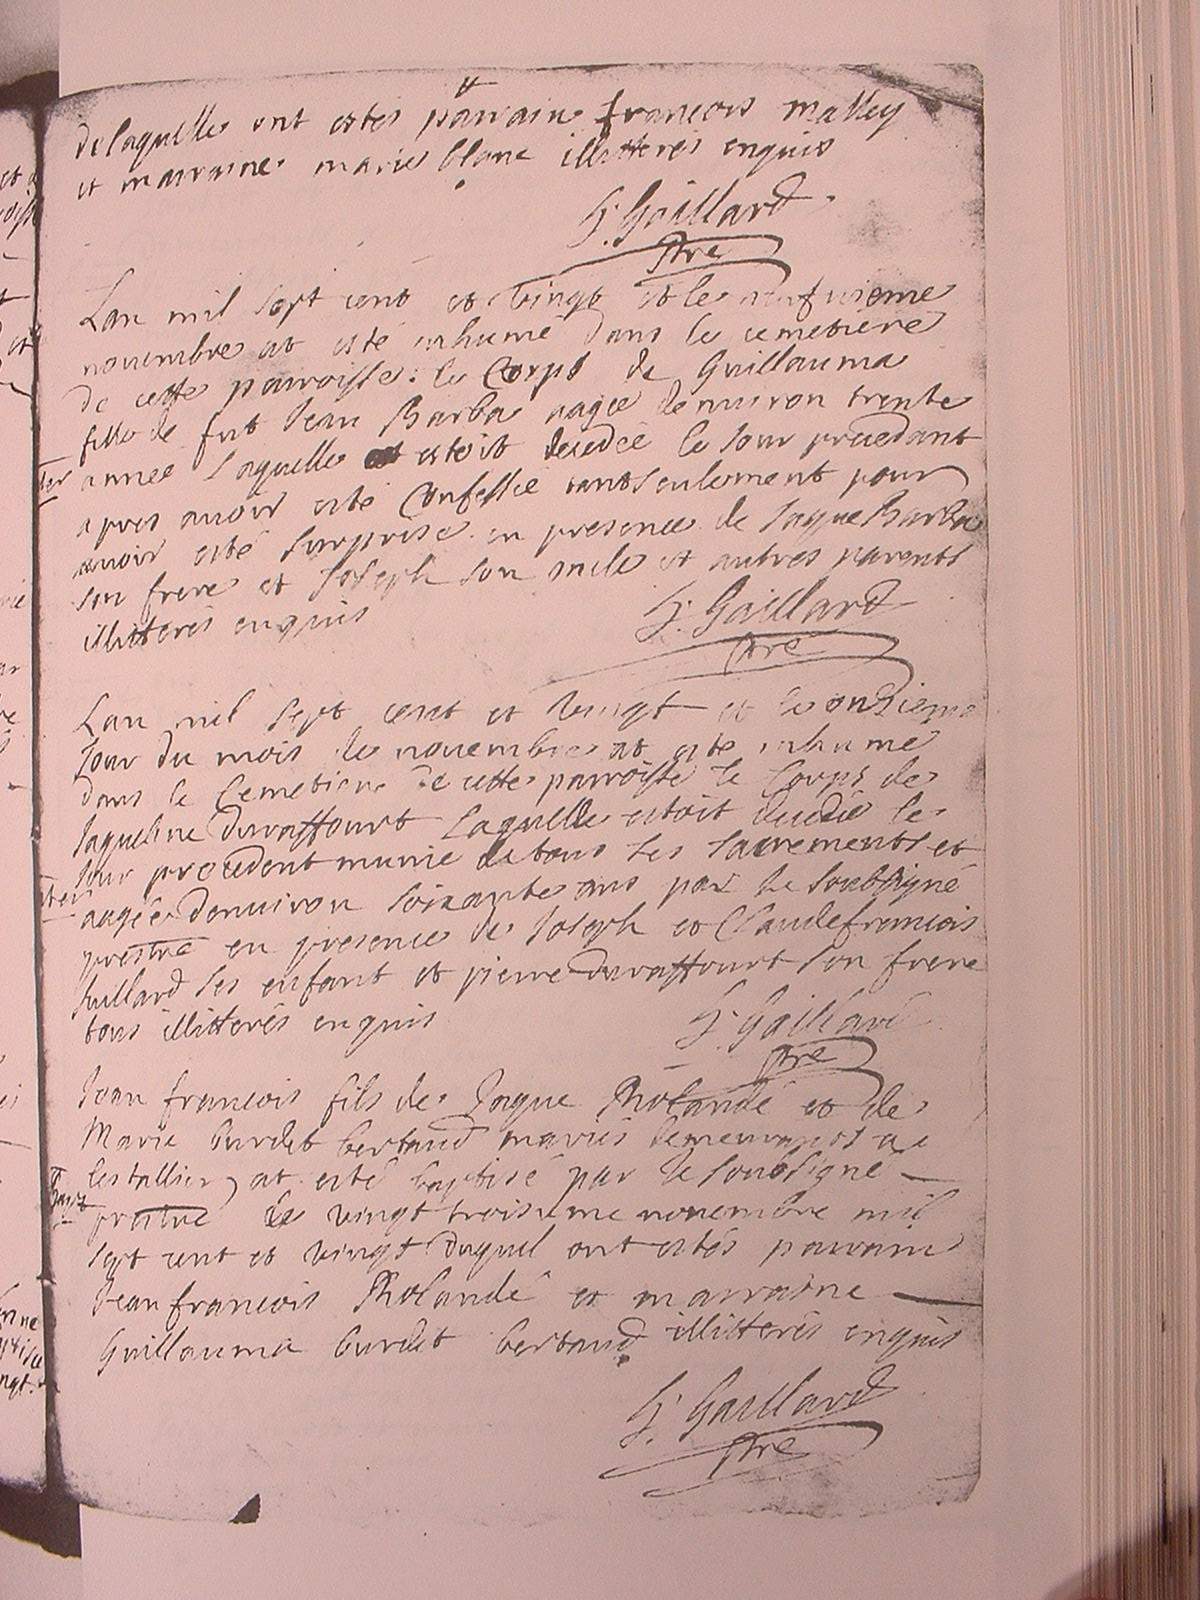 de laquelle ont estés parrain françois malley
et marraine marie blanc illitterés enquis
h. Gaillard
ptre
Lan mil sept cent et vingt et le neufvieme
novembre at esté inhumé dans le cemetiere
de cette parroisse le Corps de Guillauma
fille de fut Jean Barba aagée denviron trente
année laquelle estoit decedée le Jour precedant
apres avoir esté Confessée tant seulement pour
avoir esté surprise en presence de Jaque Barba
son frere et Joseph son oncle et autres parents
illitterés enquis
h. Gaillard
ptre
Lan mil sept cent et vingt et le onzieme
Jour du mois de novembre at esté inhumé
dans le Cemetiere de cette parroisse le Corps de
Jaqueline Duraffourt Laquelle estoit decedée le
Jour precedent munie de tous les sacrements et
aagée denviron soixante ans par le soubsigné
prestre en presence de Joseph et Claude françois
Jullard ses enfant et pierre Duraffourt son frere
tous illitterés enquis
h. Gaillard
ptre
Jean françois fils de Jaque Rolandé et de
Marie burdet bertaud mariés demeurants a
lestallier at esté baptisé par le soubsigné
prestre le vingt troisieme novembre mil
sept cent et vingt duquel ont estés parrain
Jean françois Rolandé et marraine
Guillauma burdet bertaud illitterés enquis
h. Gaillard
ptre